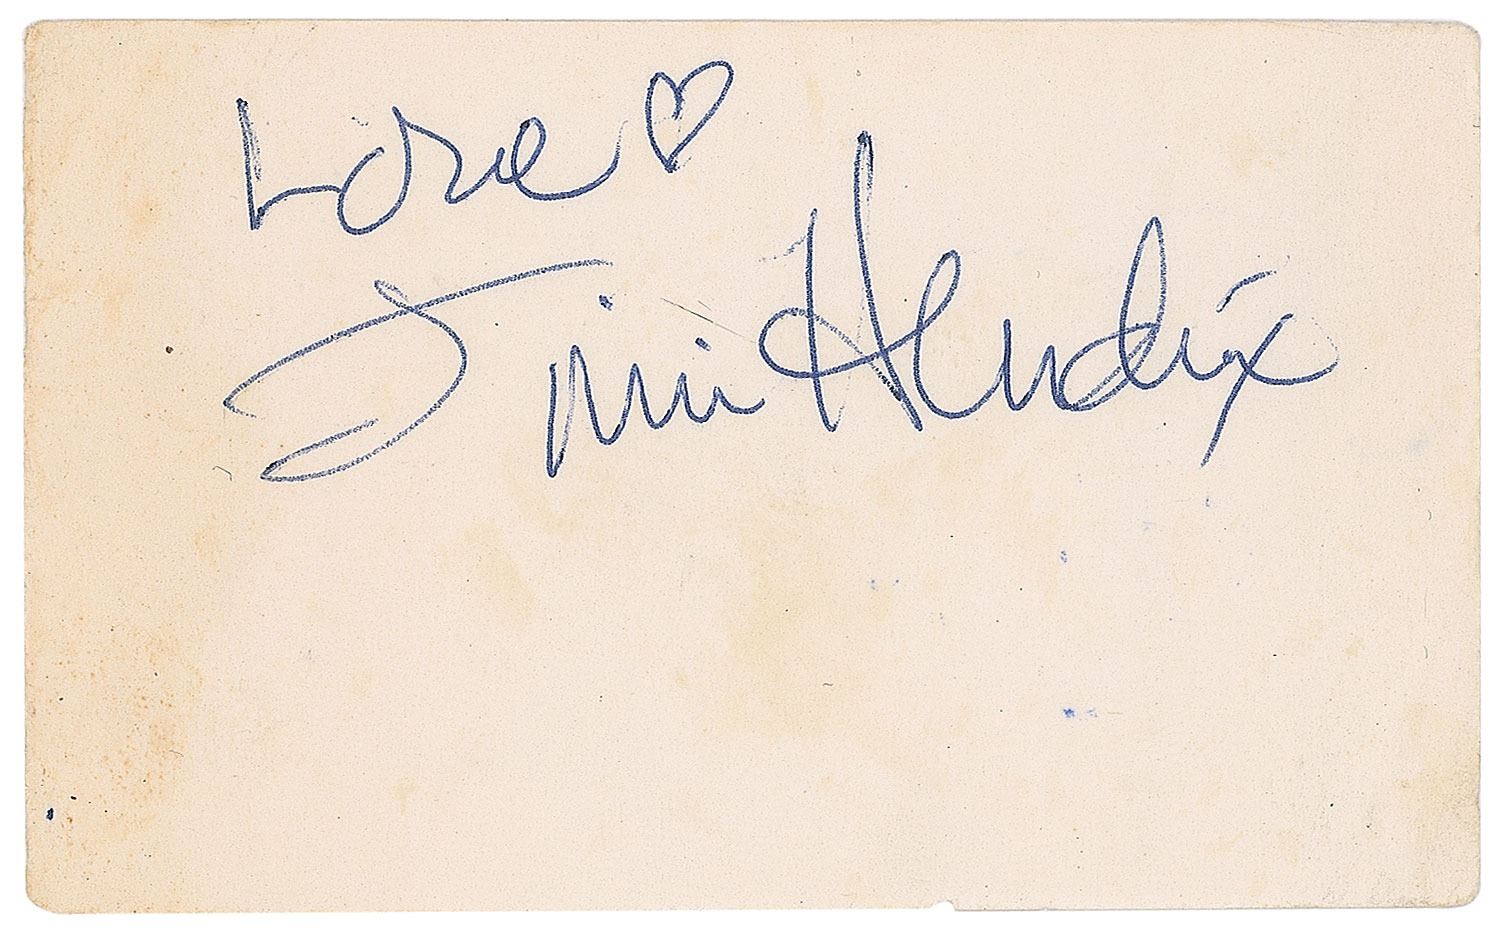 Love ♡
Jimi Hendrix